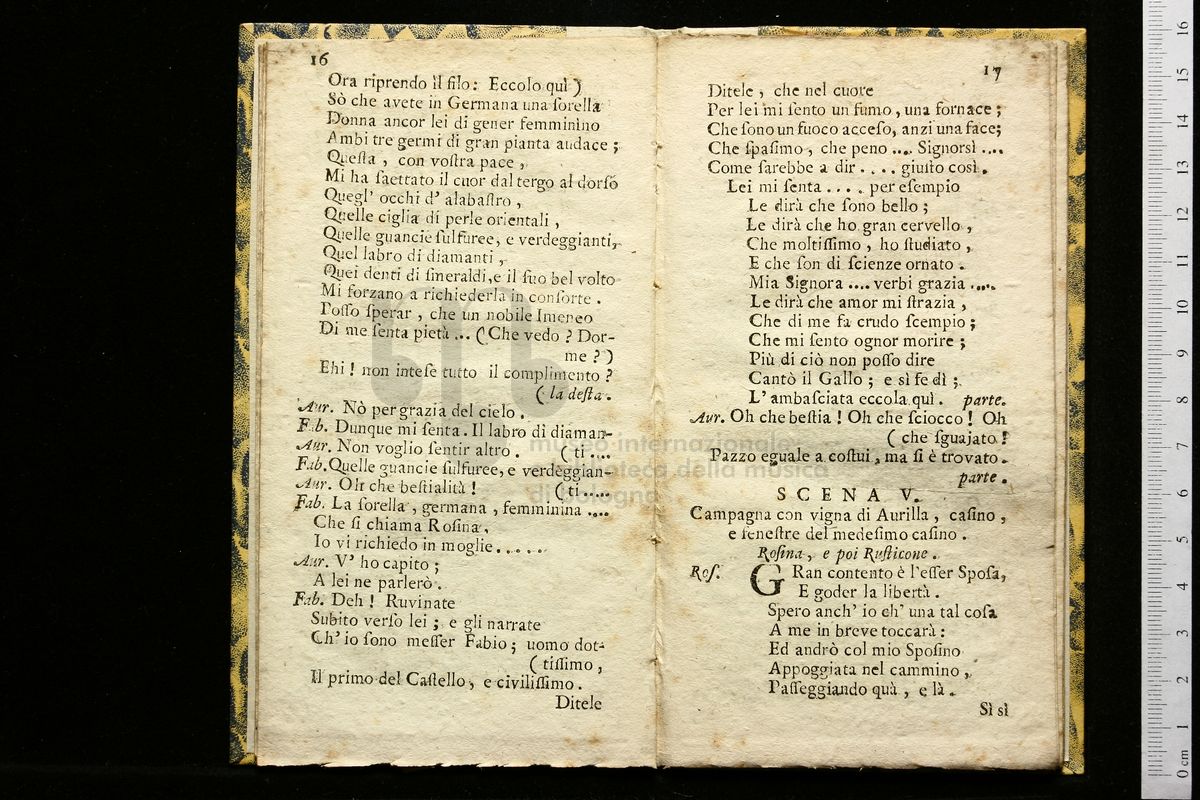 16
Ora riprendo il filo: Eccolo quì )
Sò che avete in Germana una ſorella
Donna ancor lei di gener femminino
Ambi tre germi di gran pianta audace ;
Queſta , con voſtra pace ,
Mi ha ſaettato il cuor dal tergo al dorſó
Quegl' occhi d' alabaſtro ,
Quelle ciglia di perle orientali ,
Quelle guancie ſulfuree, e verdeggianti,
Quel labro di diamanti ,
Quei denti di ſmeraldi,e il ſuo bel volto
Mi forzano a richiederla in conſorte .
Poſſo ſperar , che un nobile Imeneo
Di me ſenta pietà ... ( Che vedo ? Dor-
me ? )
Ehi ! non inteſe tutto il complimento ?
( la deſta .
Aur. Nò per grazia del cielo .
Fab. Dunque mi ſenta. Il labro di diaman-
Aur. Non voglio ſentir altro . ( ti ....
Fab. Quelle guancie ſulfuree, e verdeggian-
Aur. Oh che beſtialità ! ( ti .....
Fab. La ſorella , germana , femminina ....
Che ſi chiama Roſina,
Io vi richiedo in moglie......
Aur. V' ho capito ;
A lei ne parlerò .
Fab. Deh ! Ruvinate
Subito verſo lei ; e gli narrate
Ch' io ſono meſſer Fabio ; uomo dot-
( tiſſimo ,
Il primo del Caſtello , e civiliſſimo .
Ditele
17
Ditele , che nel cuore
Per lei mi ſento un fumo , una fornace ;
Che ſono un fuoco acceſo, anzi una face;
Che ſpaſimo , che peno .... Signorsì ....
Come ſarebbe a dir .... giuſto così .
Lei mi ſenta .... per eſempio
Le dirà che ſono bello ;
Le dirà che ho gran cervello ,
Che moltiſſimo , ho ſtudiato ,
E che ſon di ſcienze ornato .
Mia Signora .... verbi grazia .....
Le dirà che amor mi ſtrazia ,
Che di me fa crudo ſcempio ;
Che mi ſento ognor morire ;
Più di ciò non poſſo dire
Cantò il Gallo ; e sì fe dì ;
L' ambaſciata eccola quì . parte.
Aur. Oh che beſtia ! Oh che ſciocco ! Oh
( che ſguajato !
Pazzo eguale a coſtui , ma ſi è trovato .
parte .
SCENA V.
Campagna con vigna di Aurilla , caſino ,
e feneſtre del medeſimo caſino .
Roſina, e poi Ruſticone .
Roſ. GRan contento è l'eſſer Spoſa,
E goder la libertà .
Spero anch' io ch' una tal coſa
A me in breve toccarà :
Ed andrò col mio Spoſino
Appoggiata nel cammino ,
Paſſeggiando quà , e là .
Sì sì
museo internazionale
e biblioteca della musica
di bologna
0 cm 1 2 3 4 5 6 7 8 9 10 11 12 13 14 15 16